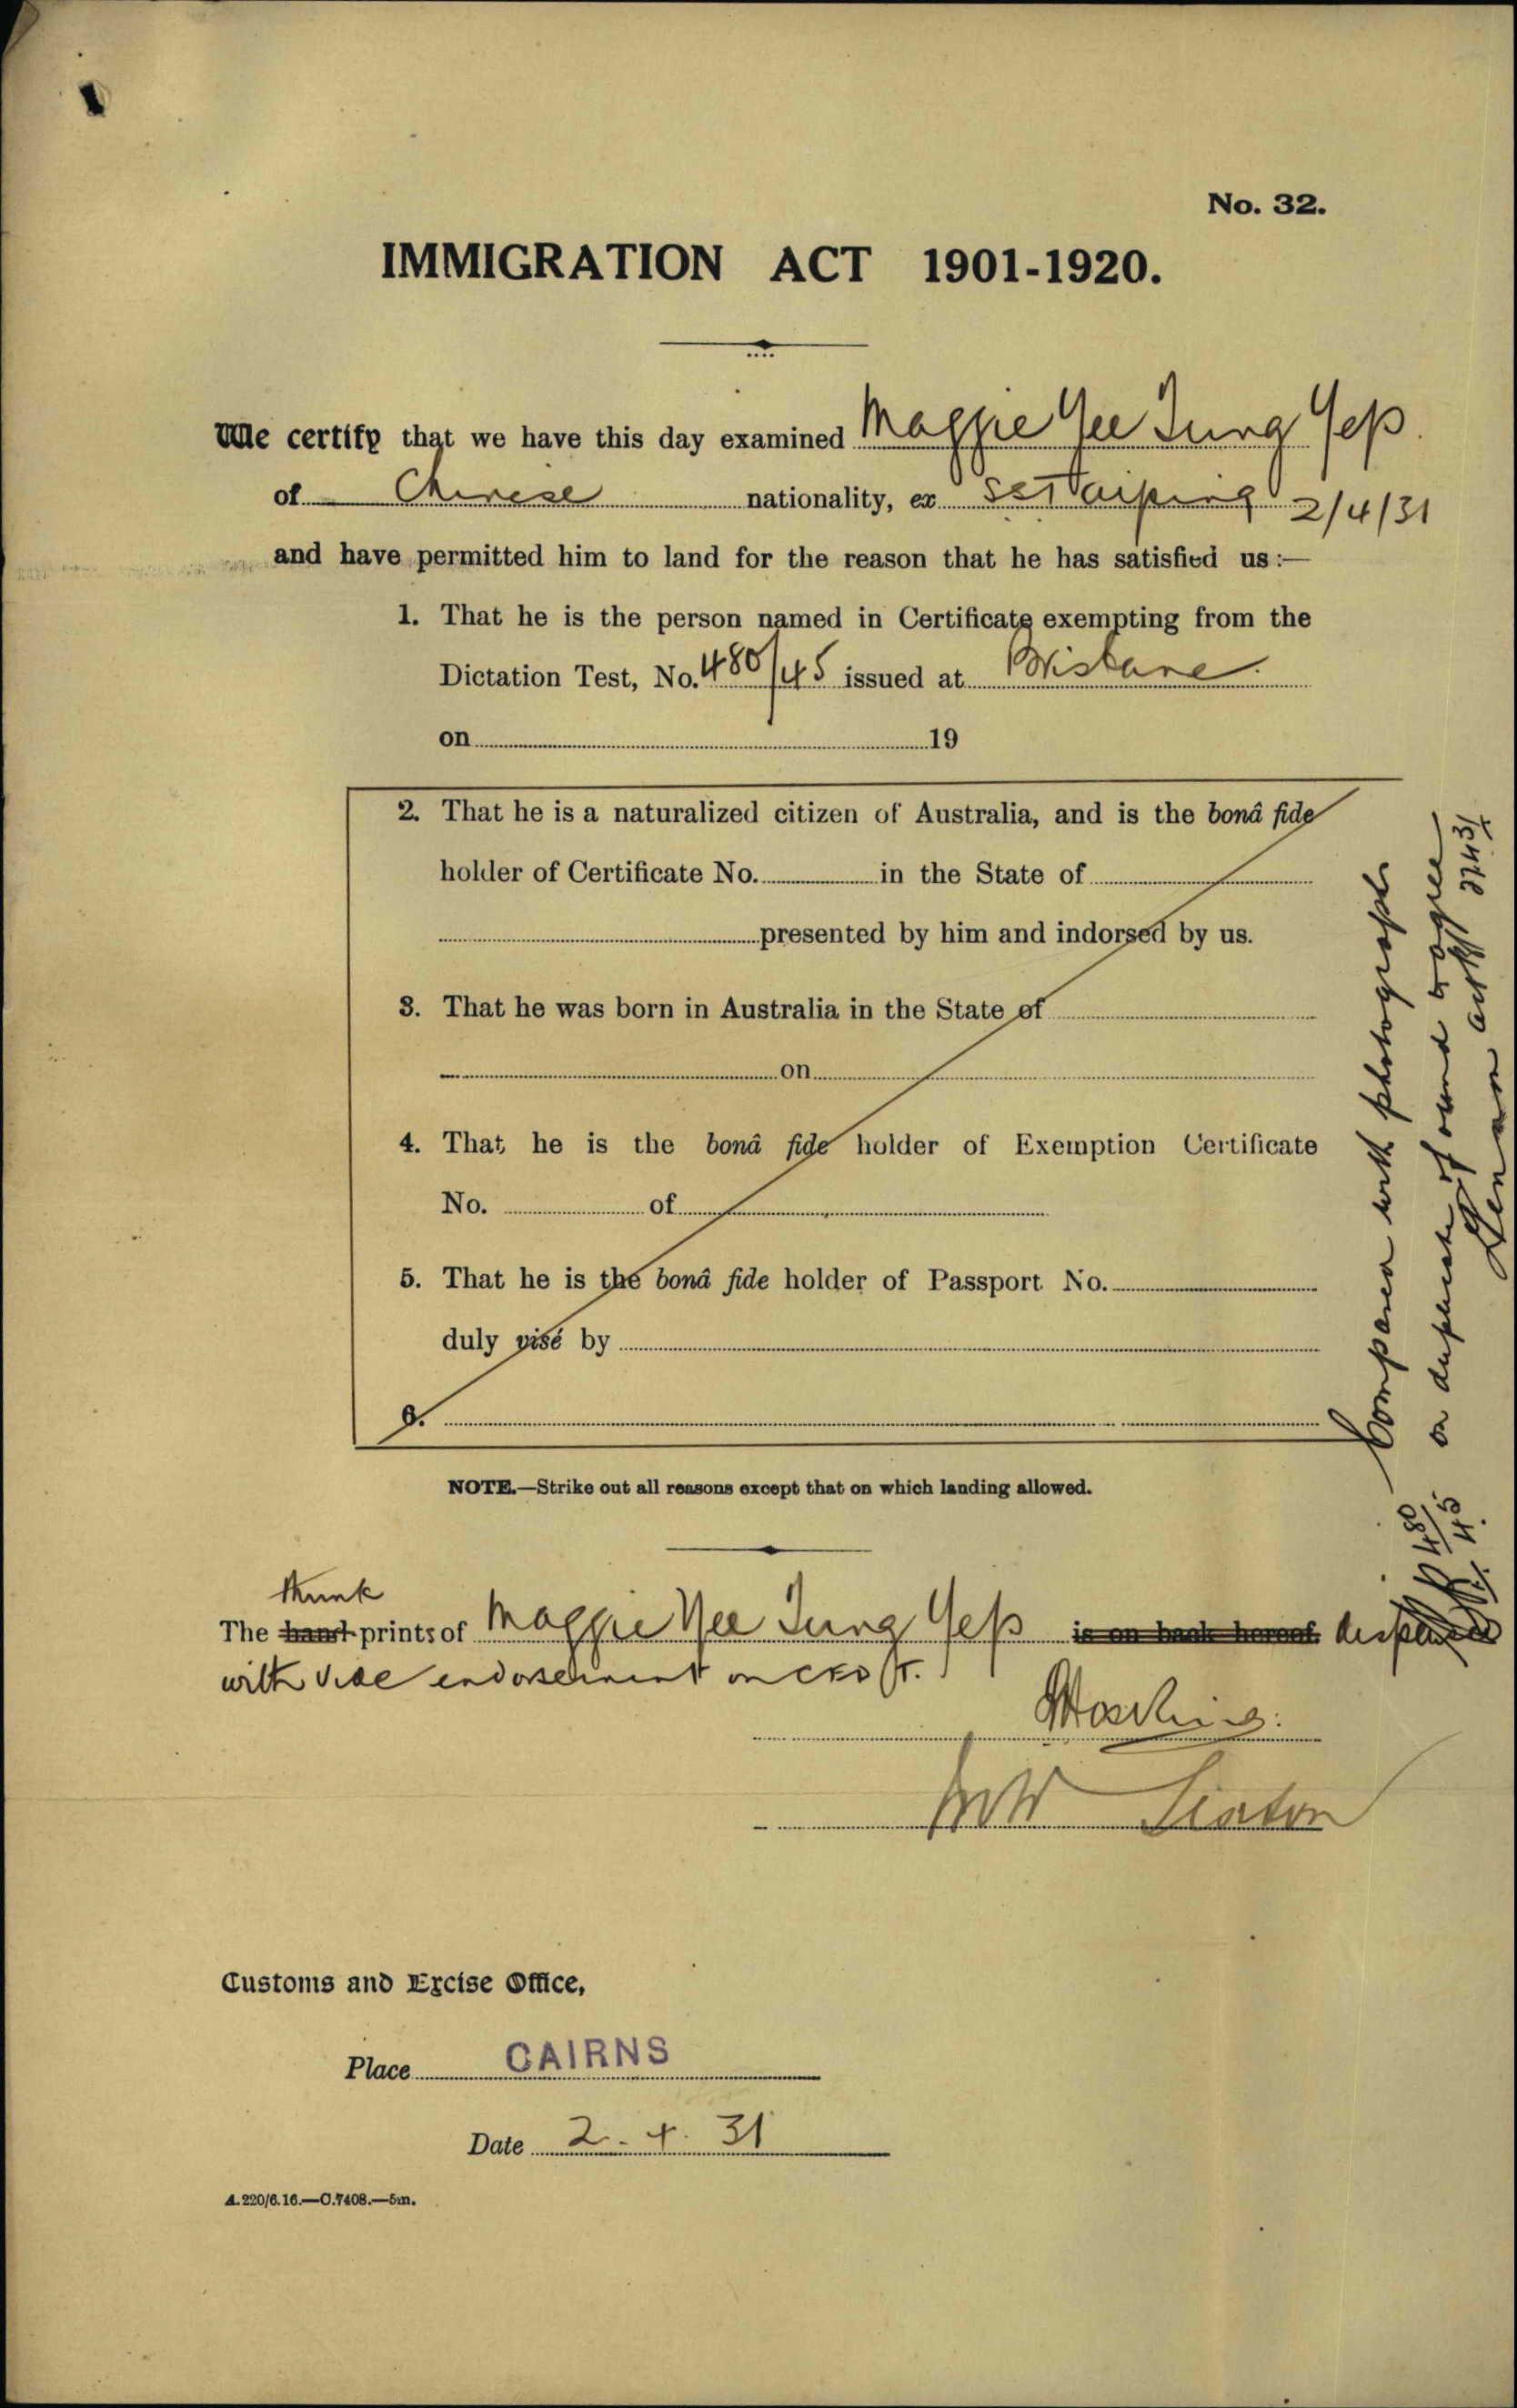 No. 32.
IMMIGRATION ACT 1901-1920.
We certify that we have this day examined Maggie Yee Tung Yep.
of Chinese nationality, ex SS Taiping 2/4/31
and have permitted him to land for the reason that he has satisfied us:—
1. That he is the person named in Certificate exempting from the
Dictation Test, No. 480/45 issued at Brisbane.
on 19
2. That he is a naturalized citizen of Australia, and is the bonâ fide
holder of Certificate No. in the State of
presented by him and indorsed by us.
3. That he was born in Australia in the State of
on
4. That he is the bonâ fide holder of Exemption Certificate
No. of
5. That he is the bonâ fide holder of Passport No.
duly visé by
6.
NOTE.—Strike out all reasons except that on which landing allowed.
Compared with photographs
on duplicate of and agree
480/45
thumb
The hand prints of Maggie Yee Tung Yep is on back hereof dispensed
with vide endorsement on CEDT.
Hosking.
Customs and Excise Office,
Place CAIRNS
Date 2. 4. 31
A.220/6.16.—C.7408.—5m.